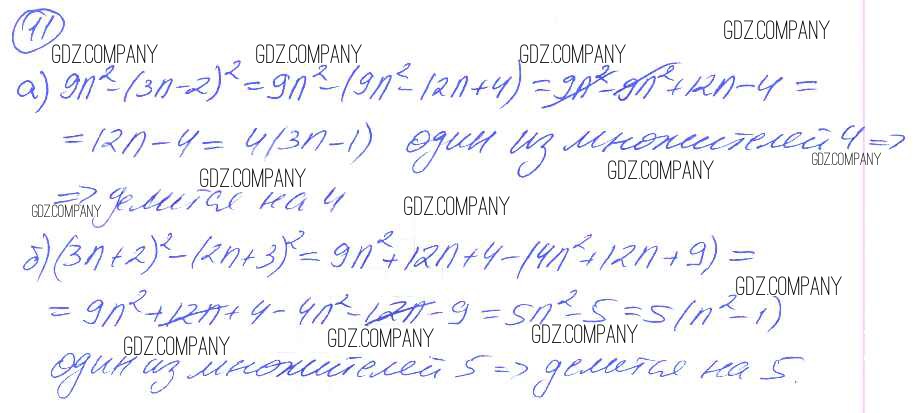 11
GDZ.COMPANY
GDZ.COMPANY GDZ.COMPANY GDZ.COMPANY
а) 9n² - (3n-2)² = 9n² - (9n² - 12n+4) = 9n² - 9n² + 12n - 4 =
= 12n - 4 = 4(3n-1) один из множителей 4 =>
GDZ.COMPANY
GDZ.COMPANY GDZ.COMPANY
=> делится на 4
GDZ.COMPANY GDZ.COMPANY
б) (3n+2)² - (2n+3)² = 9n² + 12n + 4 - (4n² + 12n + 9) =
GDZ.COMPANY
= 9n² + 12n + 4 - 4n² - 12n - 9 = 5n² - 5 = 5(n² - 1)
GDZ.COMPANY GDZ.COMPANY GDZ.COMPANY
один из множителей 5 => делится на 5.